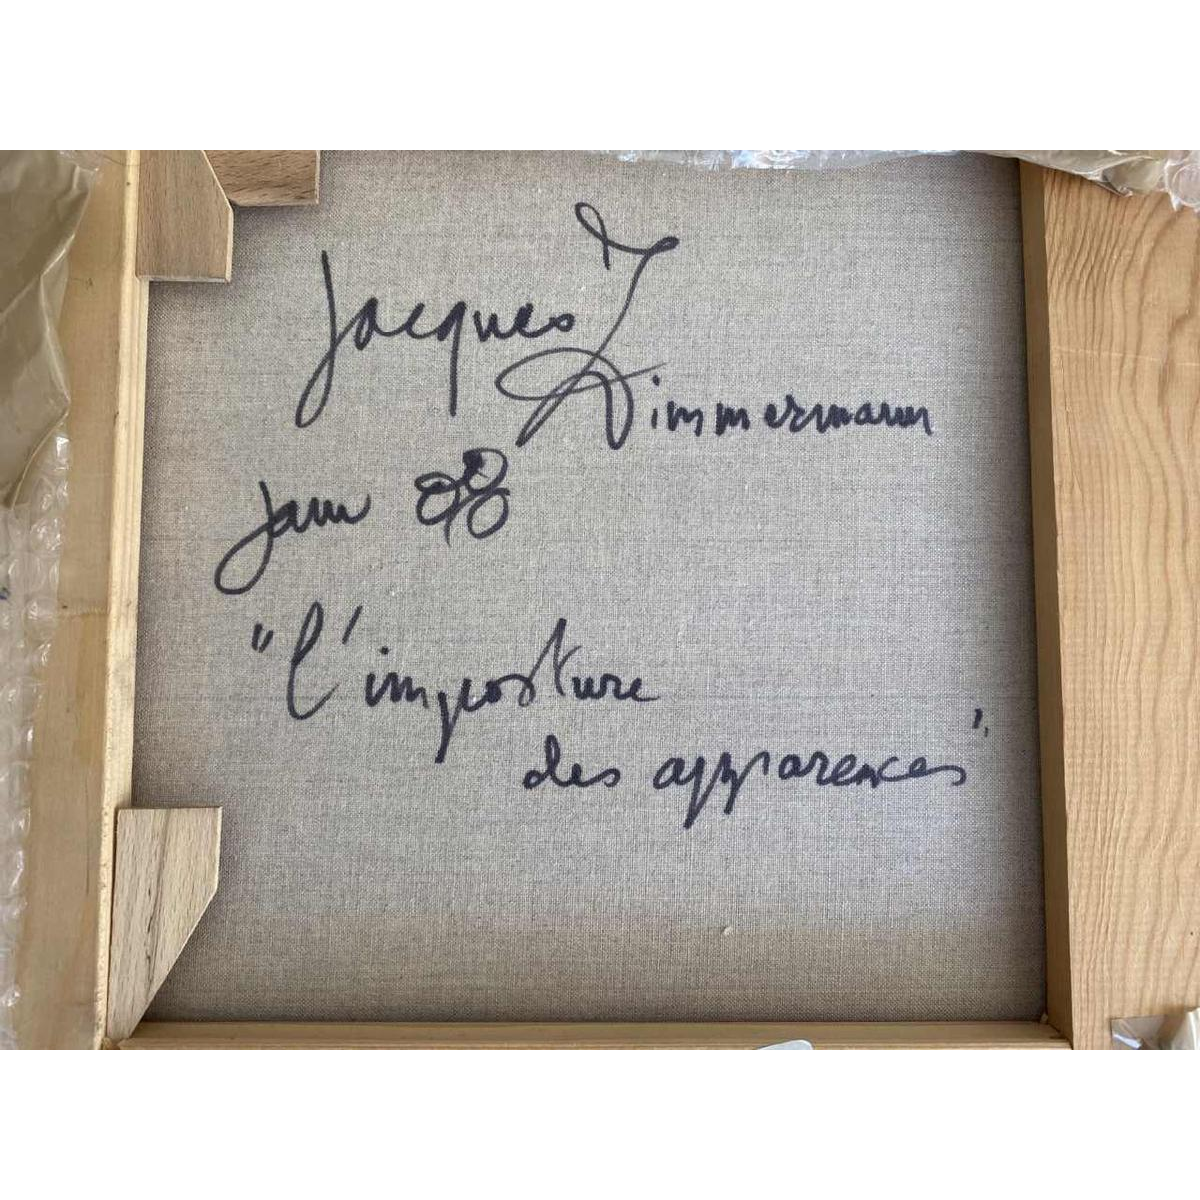 Jacques Zimmermann
Janv 98
"l'imposture
des apparences".